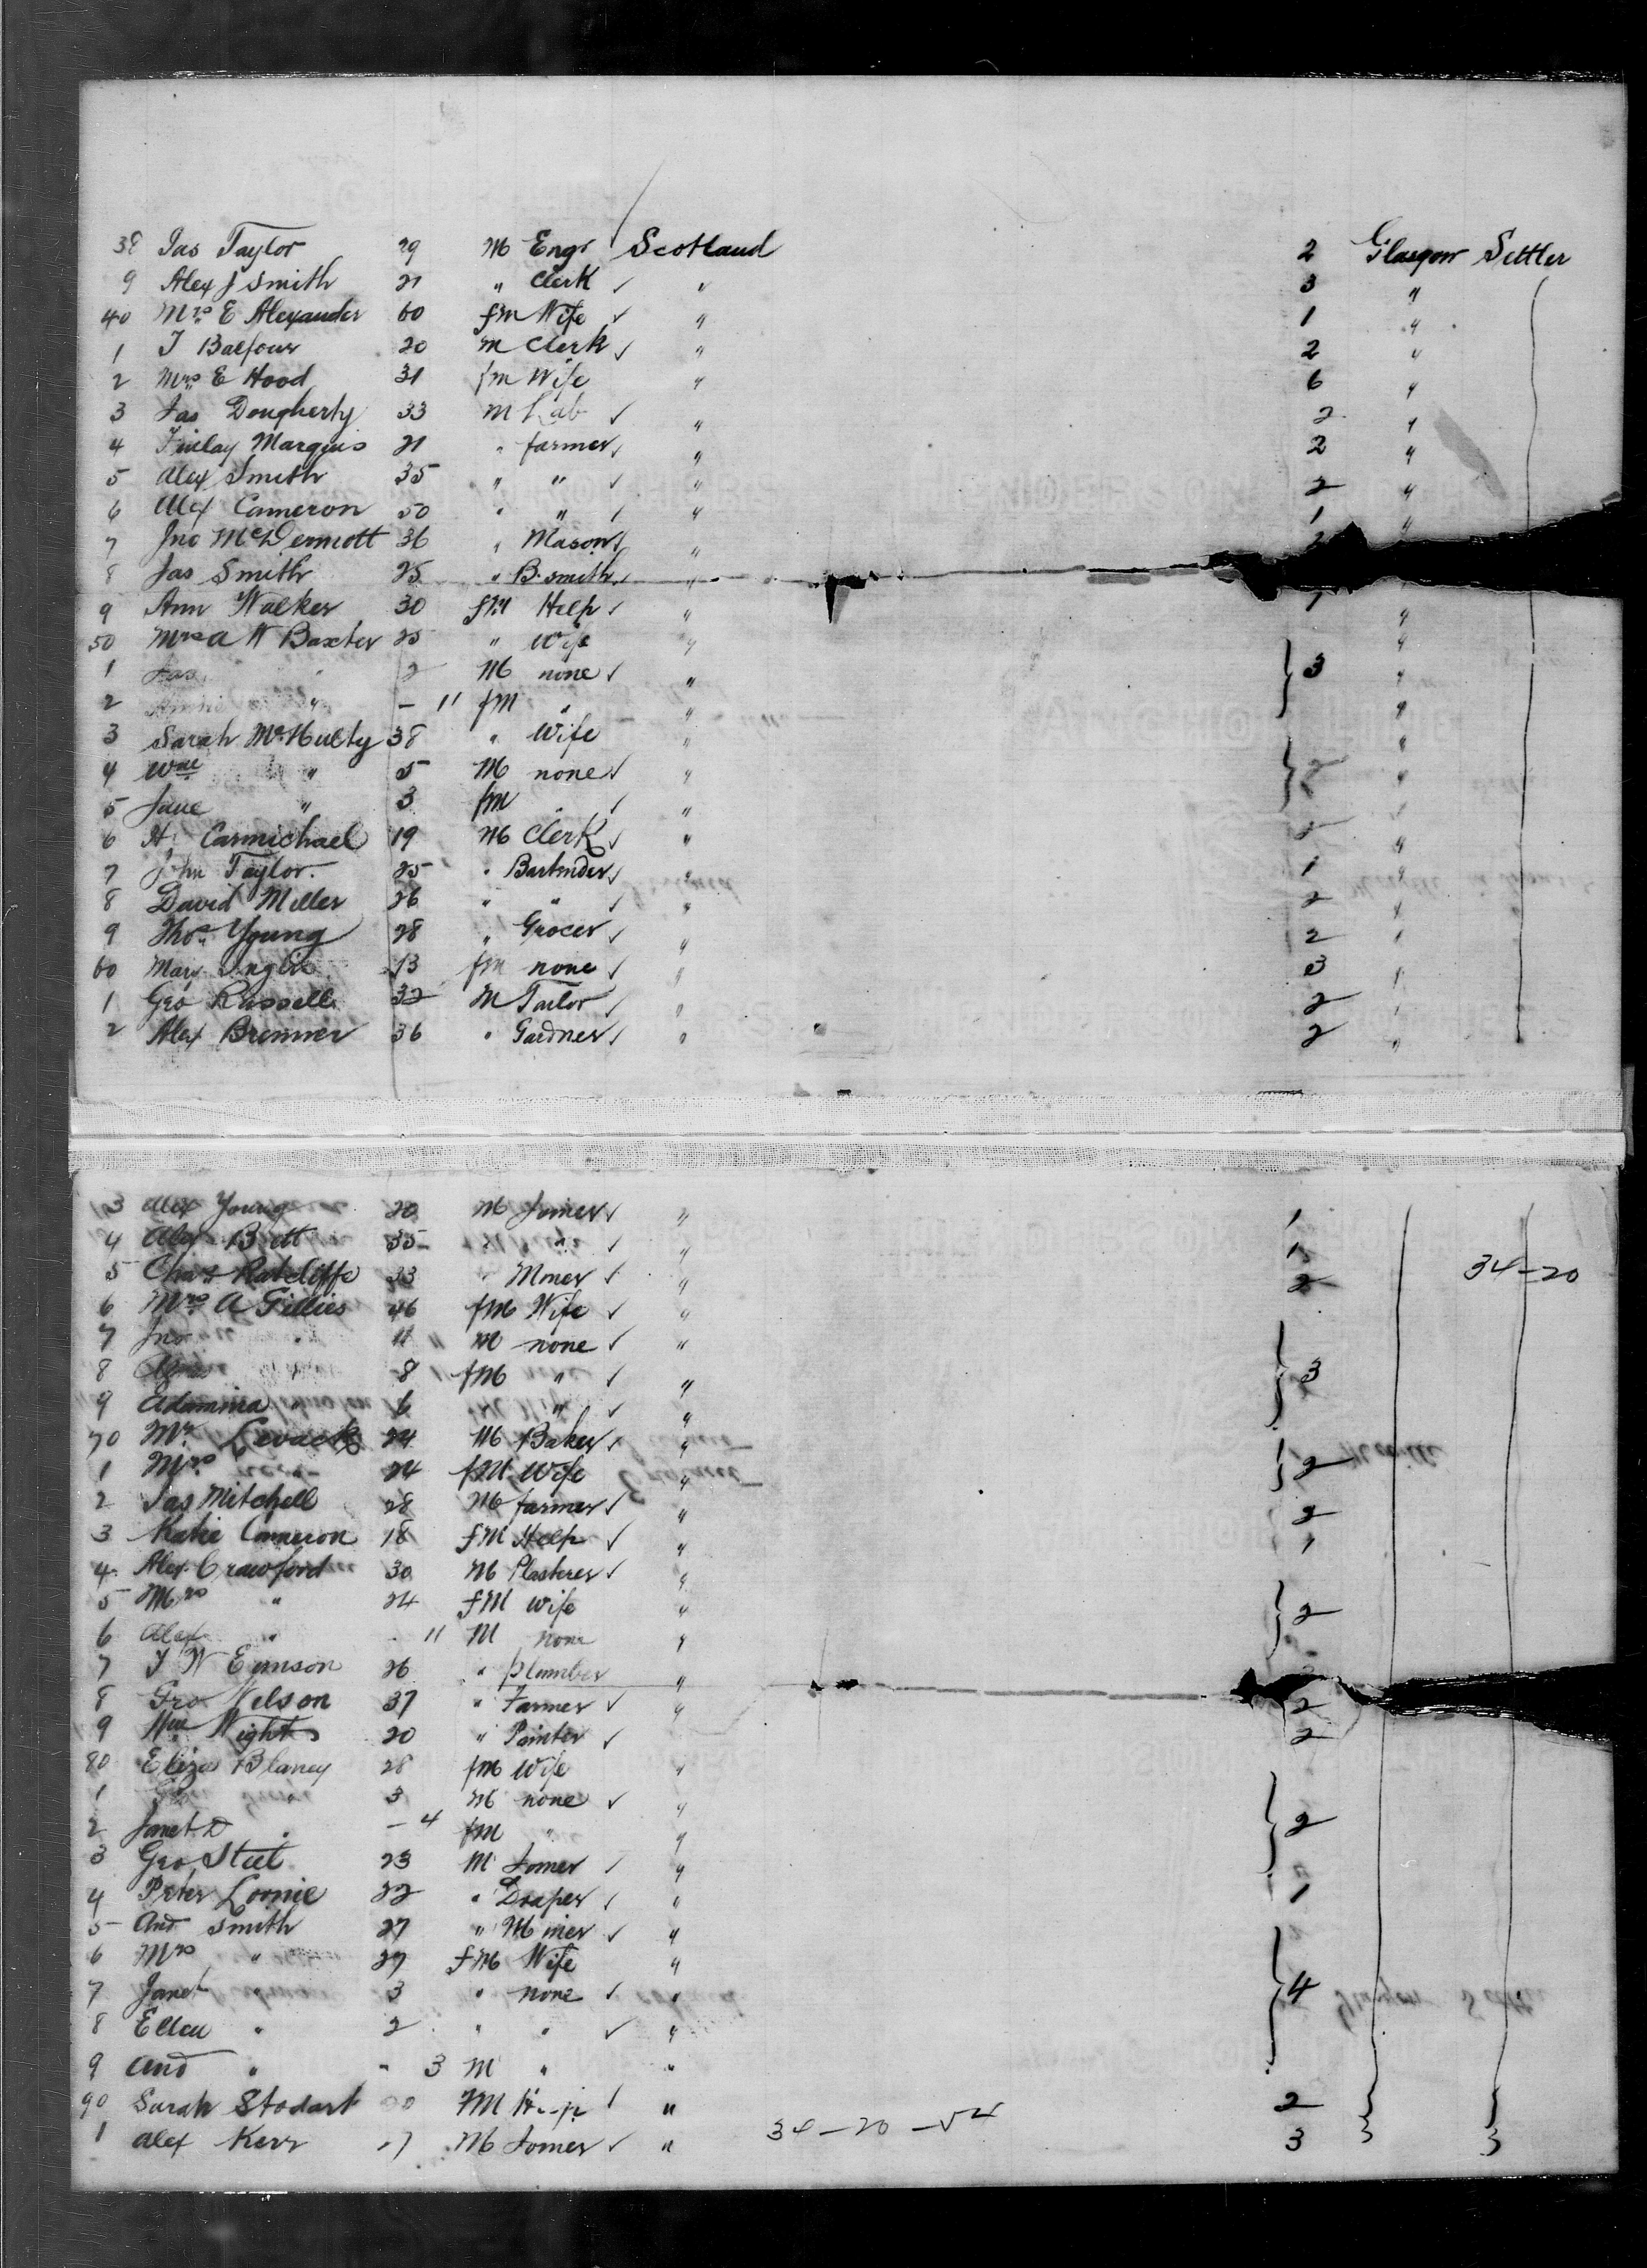 38 Jas Taylor 29 M Engr Scotland 2 Glasgow Settler
9 Alex J Smith 21 " Clerk ✓ " 3 "
40 Mrs E Alexander 60 fm Wife ✓ " 1 "
1 J Balfour 20 m Clerk ✓ " 2 "
2 Mrs E Hood 31 fm Wife " 6 "
3 Jas Dougherty 33 m Lab ✓ " 2 "
4 Finlay Marquis 21 " farmer ✓ " 2 "
5 Alex Smith 35 " " ✓ " 2 "
6 Alex Cameron 50 " " ✓ " 1 "
7 Jno McDermott 36 " Mason ✓ "
8 Jas Smith 25 " B.smith ✓ "
9 Ann Walker 30 fM Help ✓ " 1 "
50 Mrs A W Baxter 25 " Wife " "
1 Jas " 2 M none ✓ " 3 "
2 Annie " – 11 fM " " "
3 Sarah McNulty 38 " Wife " "
4 Wm " 5 M none ✓ " 2 "
5 Jane " 3 fm " ✓ " "
6 H. Carmichael 19 M Clerk ✓ " 2 "
7 John Taylor. 25 " Bartender ✓ " 1 "
8 David Miller 26 " " ✓ " 2 "
9 Thos. Young 28 " Grocer ✓ " 2 "
60 Mary Inglis 13 fm none ✓ " 3 "
1 Geo Russell 32 M Tailor ✓ " 2 "
2 Alex Bremner 36 " Gardner ✓ " 2 "
3 Alex Young 20 M Joiner ✓ " 1
4 Alex Bett 35 " ✓ " 1
5 Chas Ratcliffe 33 " Moner ✓ " 2 34–20
6 Mrs A Gillies 46 fm Wife ✓ "
7 Jno " 11 M none ✓ "
8 8 fm " ✓ " 3
9 Adamina " 6 " ✓ "
70 Mr. Levack 24 M Baker ✓ "
1 Mrs 24 fM Wife " 2
2 Jas Mitchell 28 M farmer ✓ " 2
3 Katie Cameron 18 fM Help ✓ " 1
4 Alex Crawford 30 M Plasterer ✓ "
5 Mrs " 24 fM wife " 2
6 Alex " - 11 M none "
7 J W Eunson 26 " plumber "
8 Geo Nelson 37 " Farmer ✓ " 2
9 Wm Wight 20 " Painter ✓ 2
80 Eliza Blaney 28 fm Wife "
1 3 M none ✓ "
2 Janet D " – 4 fm " " 2
3 Geo Steel 23 M Joiner ✓ "
4 Peter Loonie 22 " Draper ✓ " 1
5 And Smith 27 " Miner ✓ "
6 Mrs " 27 fm Wife "
7 Janet " 3 " none ✓ " 4
8 Ellen " 2 " " ✓ "
9 And " - 3 M " "
90 Sarah Stodart fM Help ✓ " 2
1 Alex Kerr M Joiner ✓ " 34–20–54 3